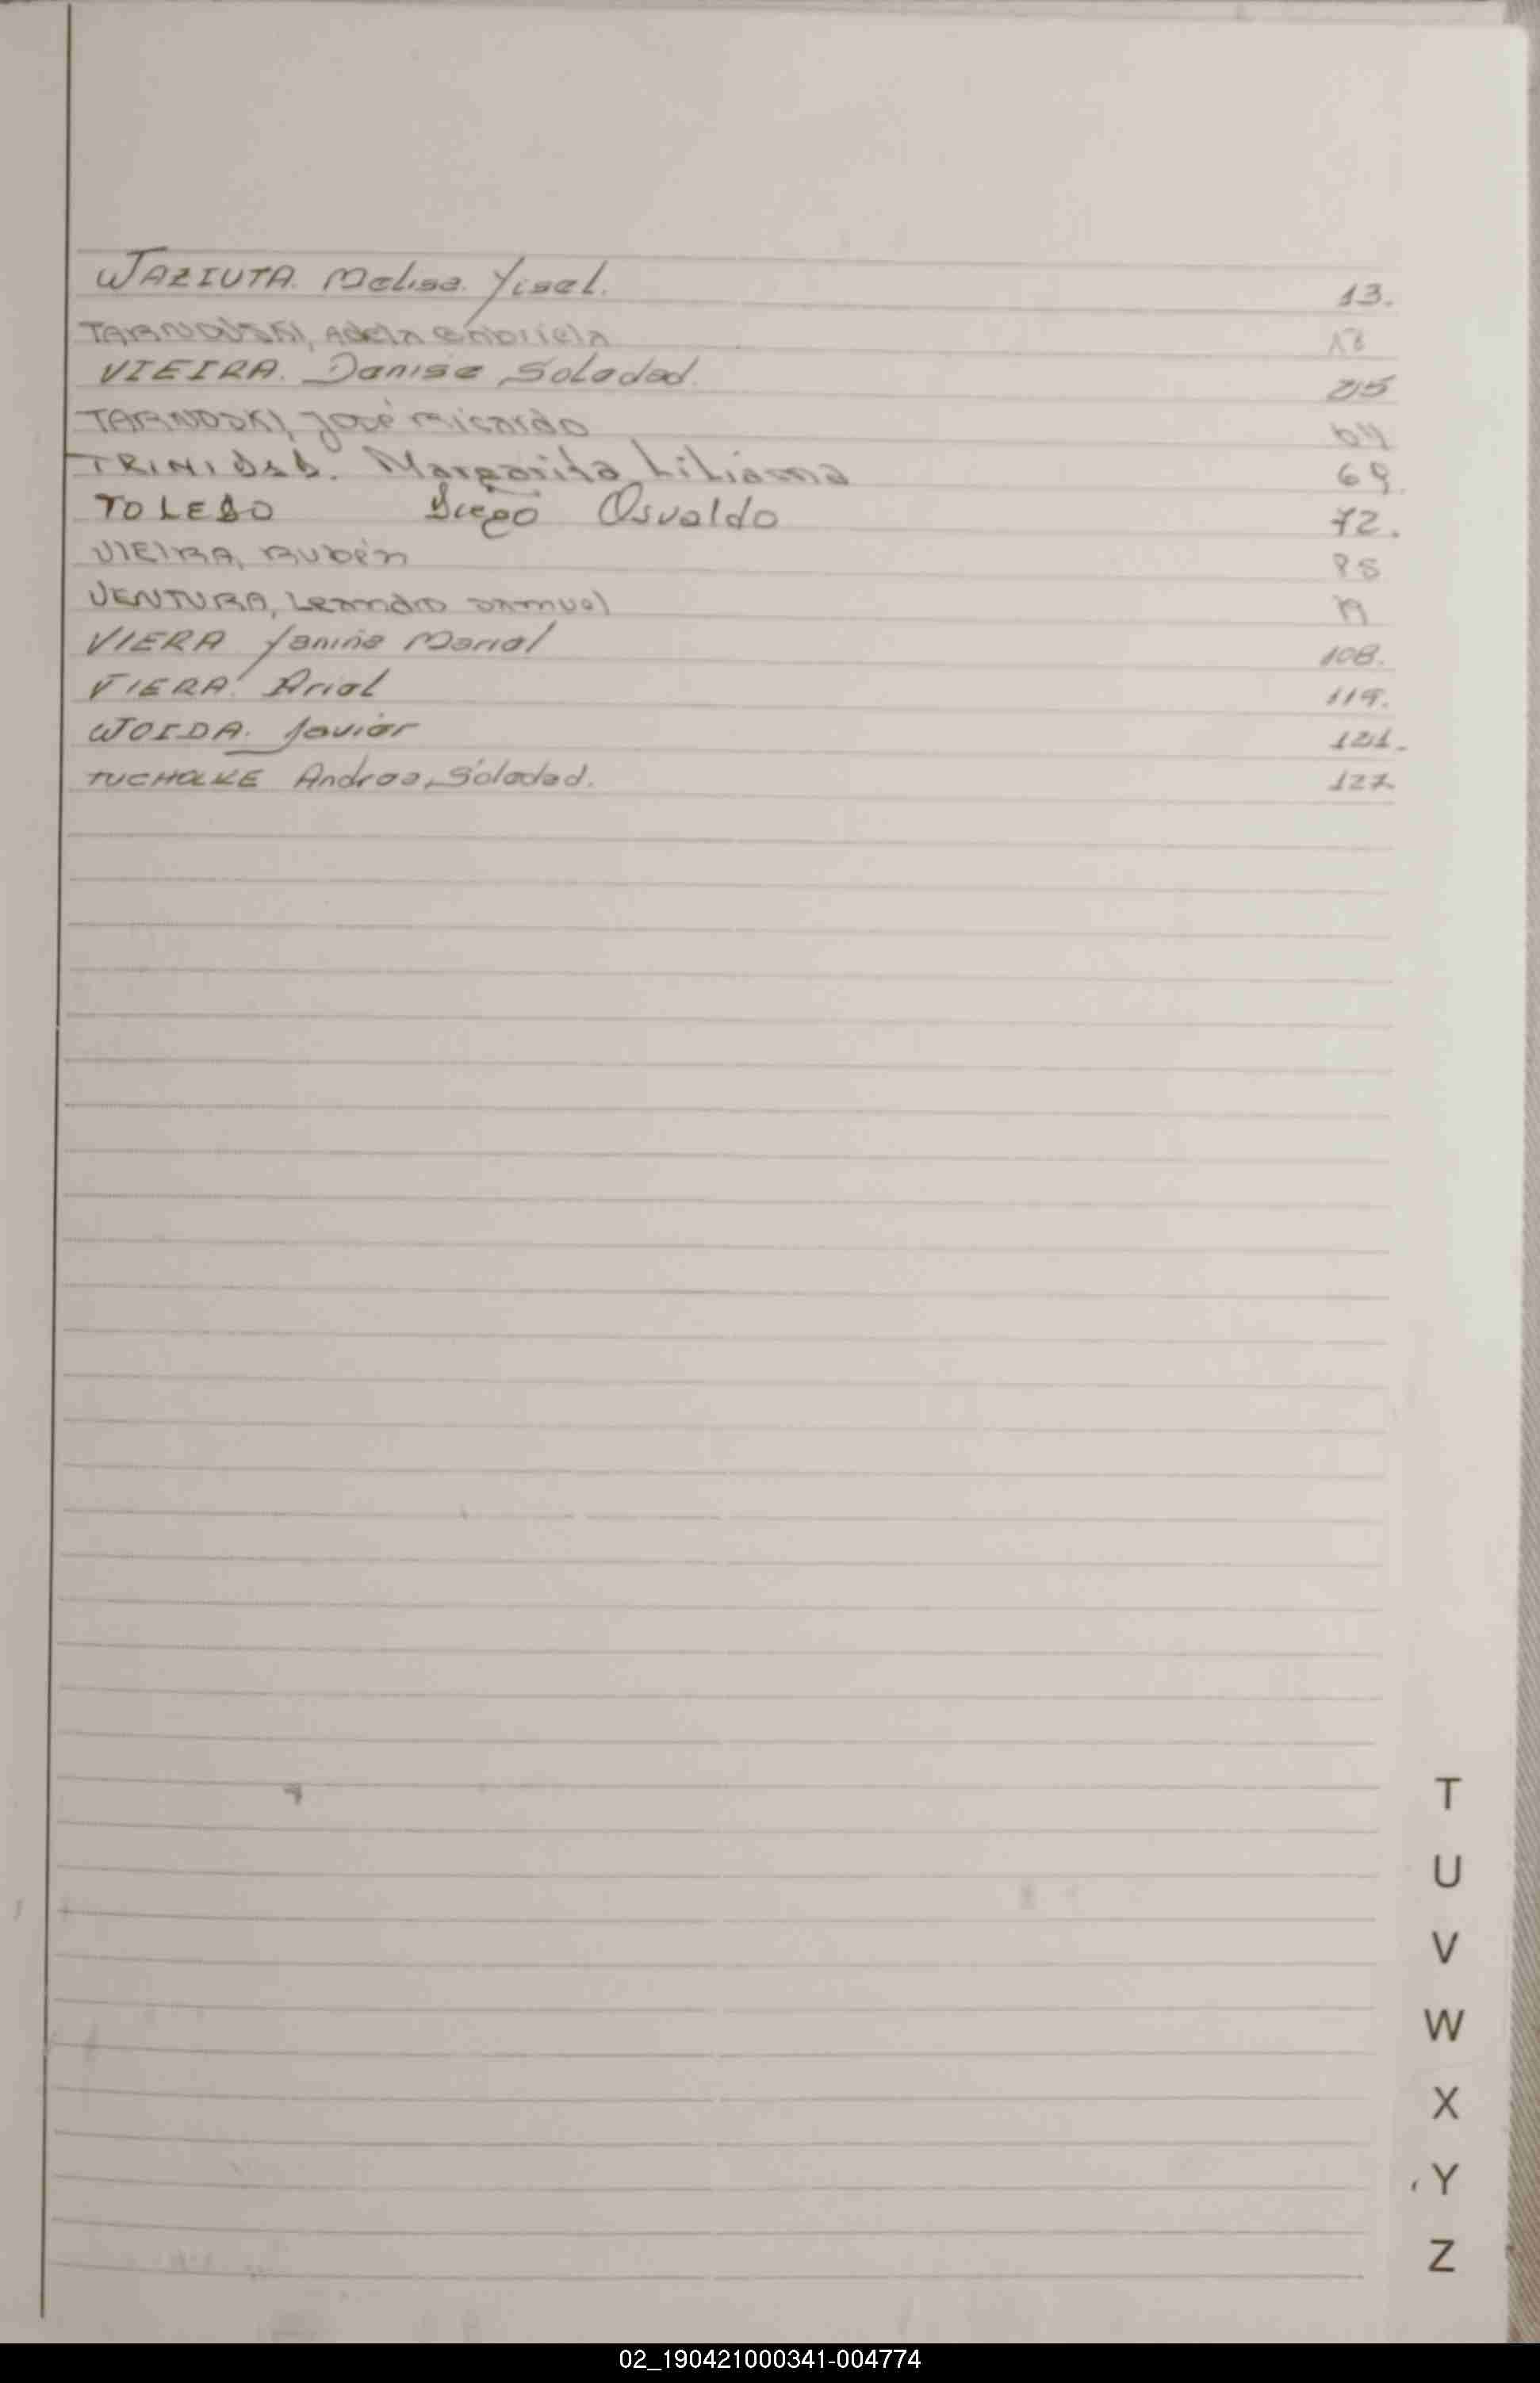 WAZIUTA. Melisa. Yisel. 13.
TARNOWSKI, Adela Gabriela 13
VIEIRA. Danise Soledad. 215
TARNOSKI, José Ricardo 64
TRINIDAD. Margarita Liliana 69.
TOLEDO Diego Osvaldo 72.
VIEIRA, Rubén 85
VENTURA, Leandro Samuel
VIERA Yanina Mariel 108.
VIERA. Ariel 119.
WOIDA. Javier 121.
TUCHOLKE Andrea Soledad. 127
T
U
V
W
X
Y
Z
02_190421000341-004774